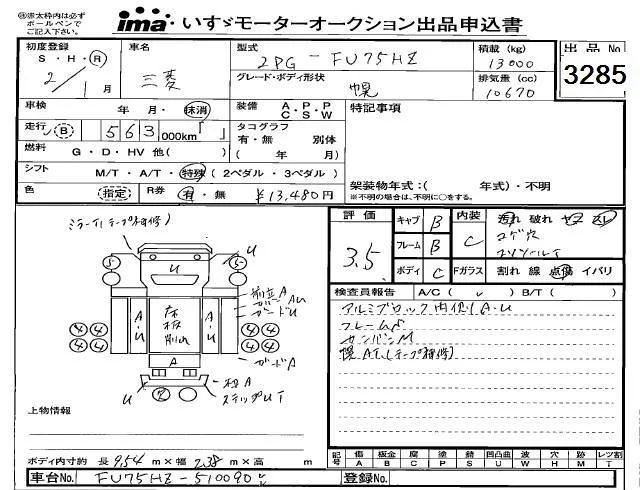 ㊟赤太枠内は必ずボールペンでご記入下さい。
ima いすゞモーターオークション出品申込書
初度登録 S・H・Ⓡ 2/1月
車名 三菱
型式 2PG-FU75HZ
グレード・ボディ形状 幌
積載(kg) 13000
排気量(cc) 10670
出品No 3285
車検 年 月・抹消
装備 A・P・P C・S・W
特記事項
走行 Ⓑ 563 000km「 」
タコグラフ 有・無 別体 ( 年 月)
燃料 G・D・HV 他( )
シフト M/T・A/T・特殊(2ペダル・3ペダル)
架装物年式:( 年式)・不明
※不明の場合は、不明に○をする。
色 (指定) R券 有・無 ¥13,480円
評価 3.5
キャブ B
フレーム B
ボディ C
内装 C
汚れ 破れ ヤブ スレ
コゲ穴
Fガラス 割れ 線 点傷 イバリ
検査員報告 A/C( ✓ ) B/T( )
アルミブロック内側1 A・U
フレームS
カンバンM
幌AT(テープ補修)
ミラーT(テープ補修)
U
5 5
U
A・U
床板
A・U
A
4 4 4 4
4 4 4 4
前立A
ガードU
ガードA
U
ステップUT
上物情報
ボディ内寸約 長 9.54 m×幅 2.38 m×高 m
記号 傷A 板金B 腐C 塗P 錆S 凹凸曲U 波W 穴H 跡M レンズ割T
車台No. FU75HZ-510090
登録No.